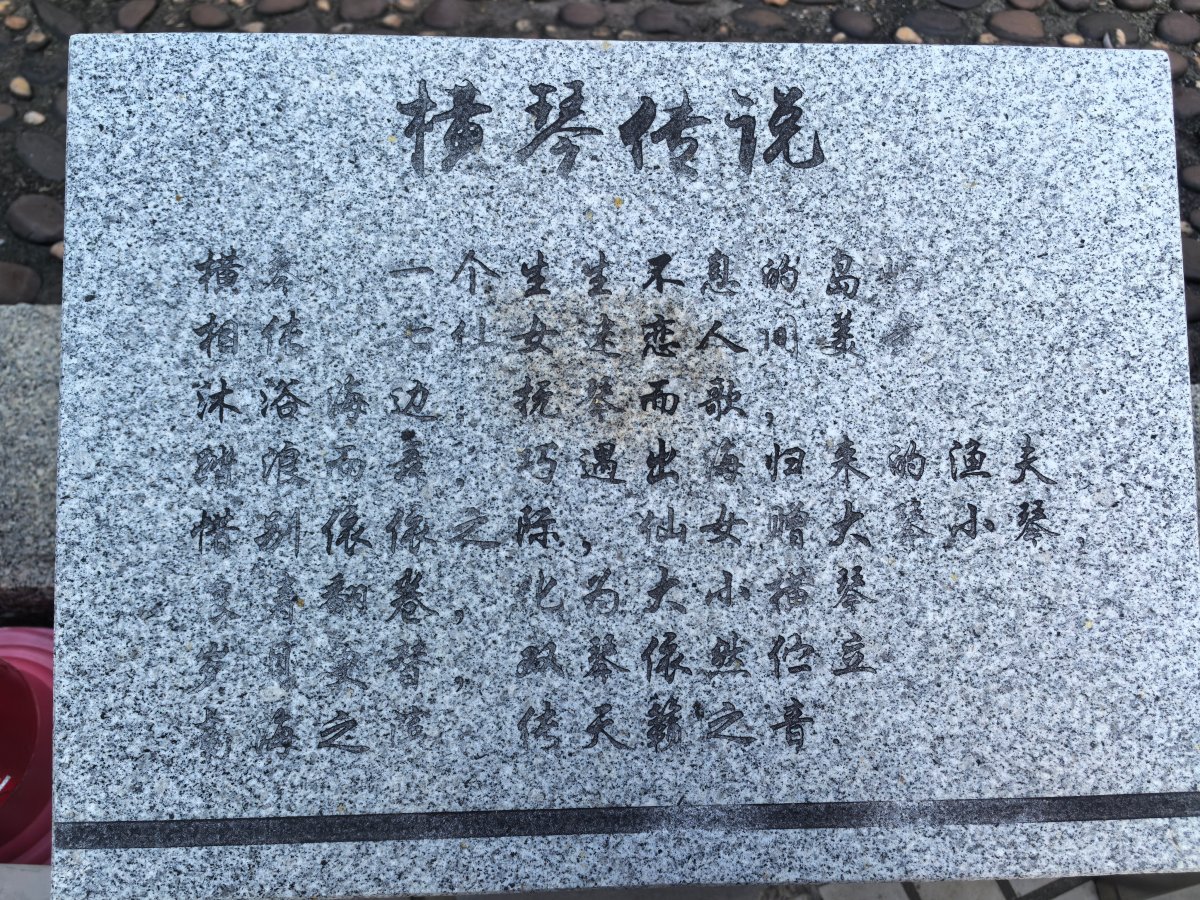 横琴传说
横琴 一个生生不息的岛屿
相传 七仙女迷恋人间美景
沐浴海边 抚琴而歌,
踏浪而舞 巧遇出海归来的渔夫
惜别依依之际, 仙女赠大琴小琴,
翻卷, 化为大小横琴
岁月更替, 双琴依然伫立
南海之 传天籁之音